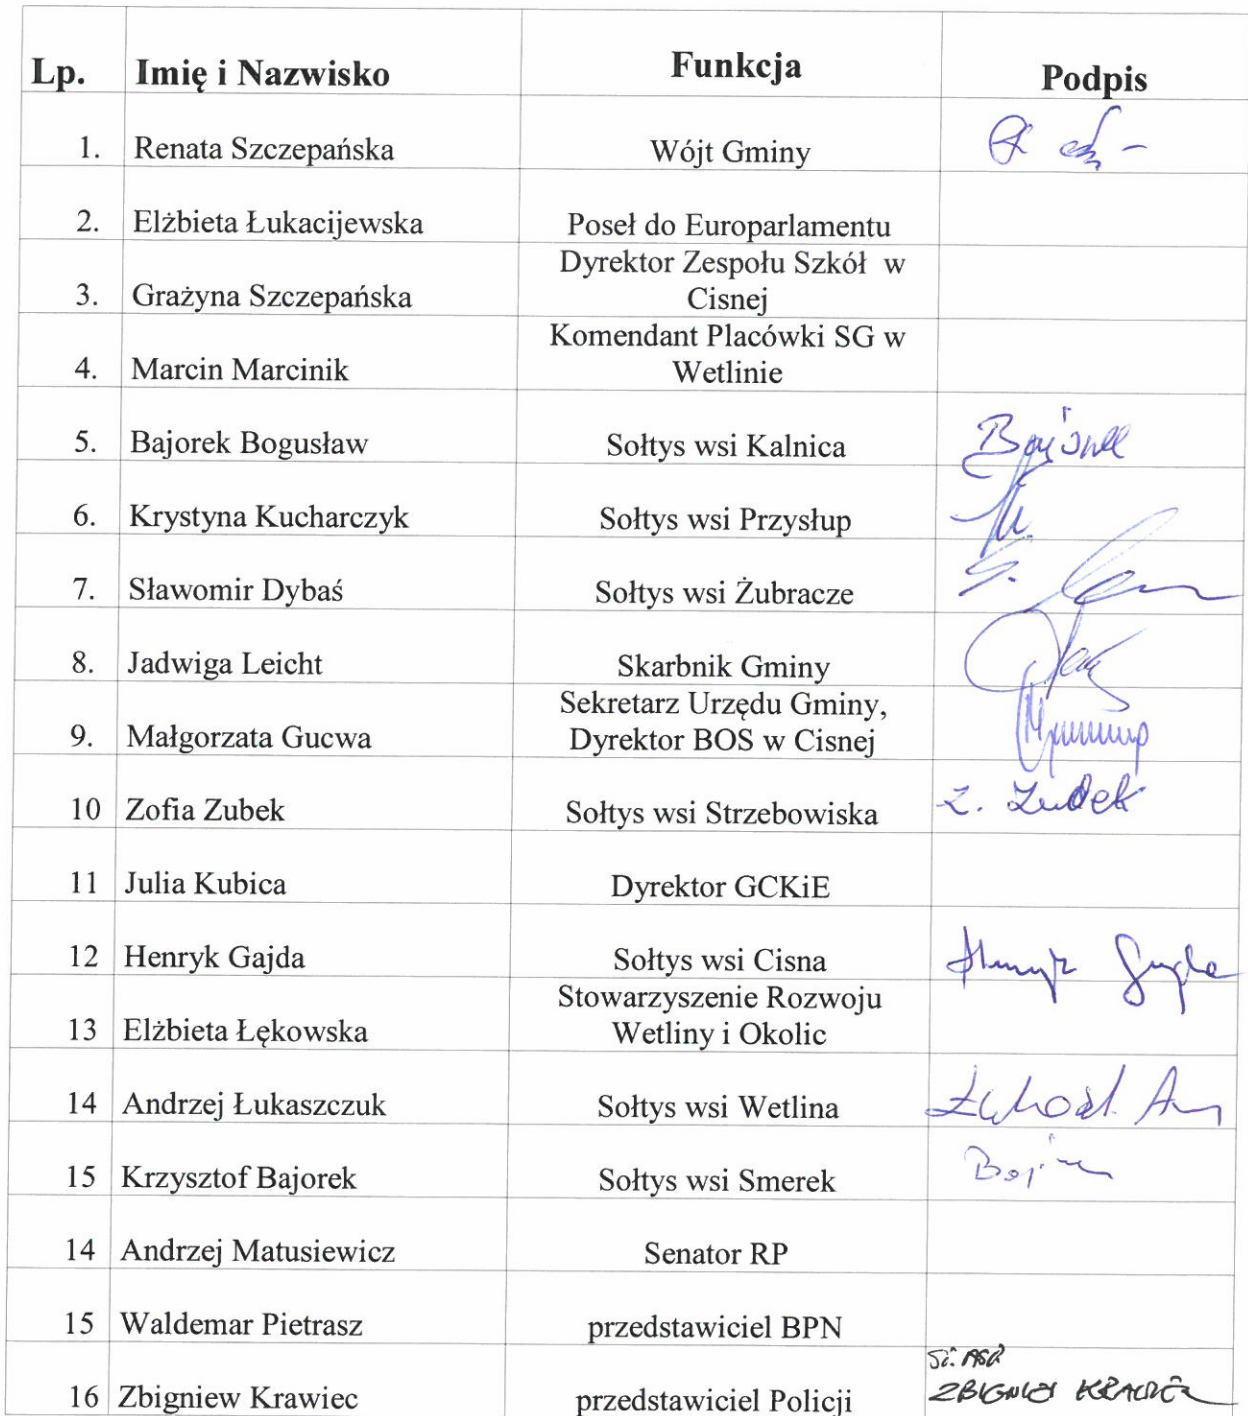 Lp. Imię i Nazwisko Funkcja Podpis
1. Renata Szczepańska Wójt Gminy
2. Elżbieta Łukacijewska Poseł do Europarlamentu
3. Grażyna Szczepańska Dyrektor Zespołu Szkół w
Cisnej
4. Marcin Marcinik Komendant Placówki SG w
Wetlinie
5. Bajorek Bogusław Sołtys wsi Kalnica
6. Krystyna Kucharczyk Sołtys wsi Przysłup
7. Sławomir Dybaś Sołtys wsi Żubracze
8. Jadwiga Leicht Skarbnik Gminy
9. Małgorzata Gucwa Sekretarz Urzędu Gminy,
Dyrektor BOS w Cisnej
10 Zofia Zubek Sołtys wsi Strzebowiska Z.
11 Julia Kubica Dyrektor GCKiE
12 Henryk Gajda Sołtys wsi Cisna Henryk Gajda
13 Elżbieta Łękowska Stowarzyszenie Rozwoju
Wetliny i Okolic
14 Andrzej Łukaszczuk Sołtys wsi Wetlina
15 Krzysztof Bajorek Sołtys wsi Smerek
14 Andrzej Matusiewicz Senator RP
15 Waldemar Pietrasz przedstawiciel BPN
16 Zbigniew Krawiec przedstawiciel Policji ZBIGNIEW KRAWIEC